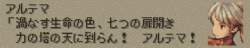 アルテマ
「渦なす生命の色、七つの扉開き
力の塔の天に到らん！　アルテマ！